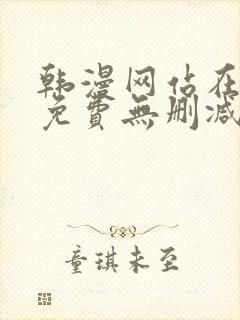 韩漫网站在
免費無删减
童琪未至